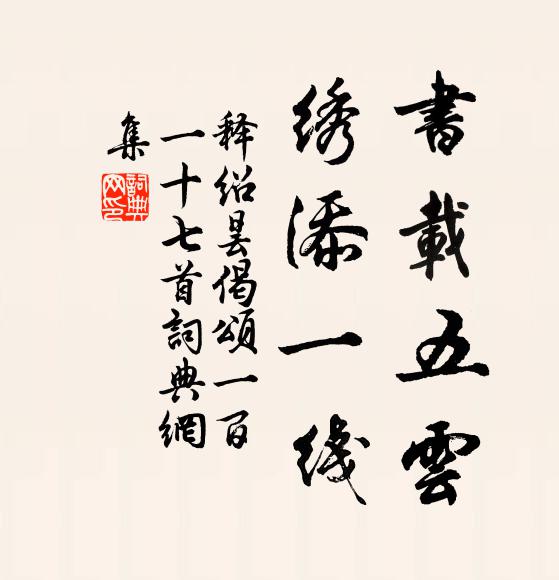 書載五雲
绣添一线
释绍昙偈頌一百
一十七首詞典網
集
詞典
网印